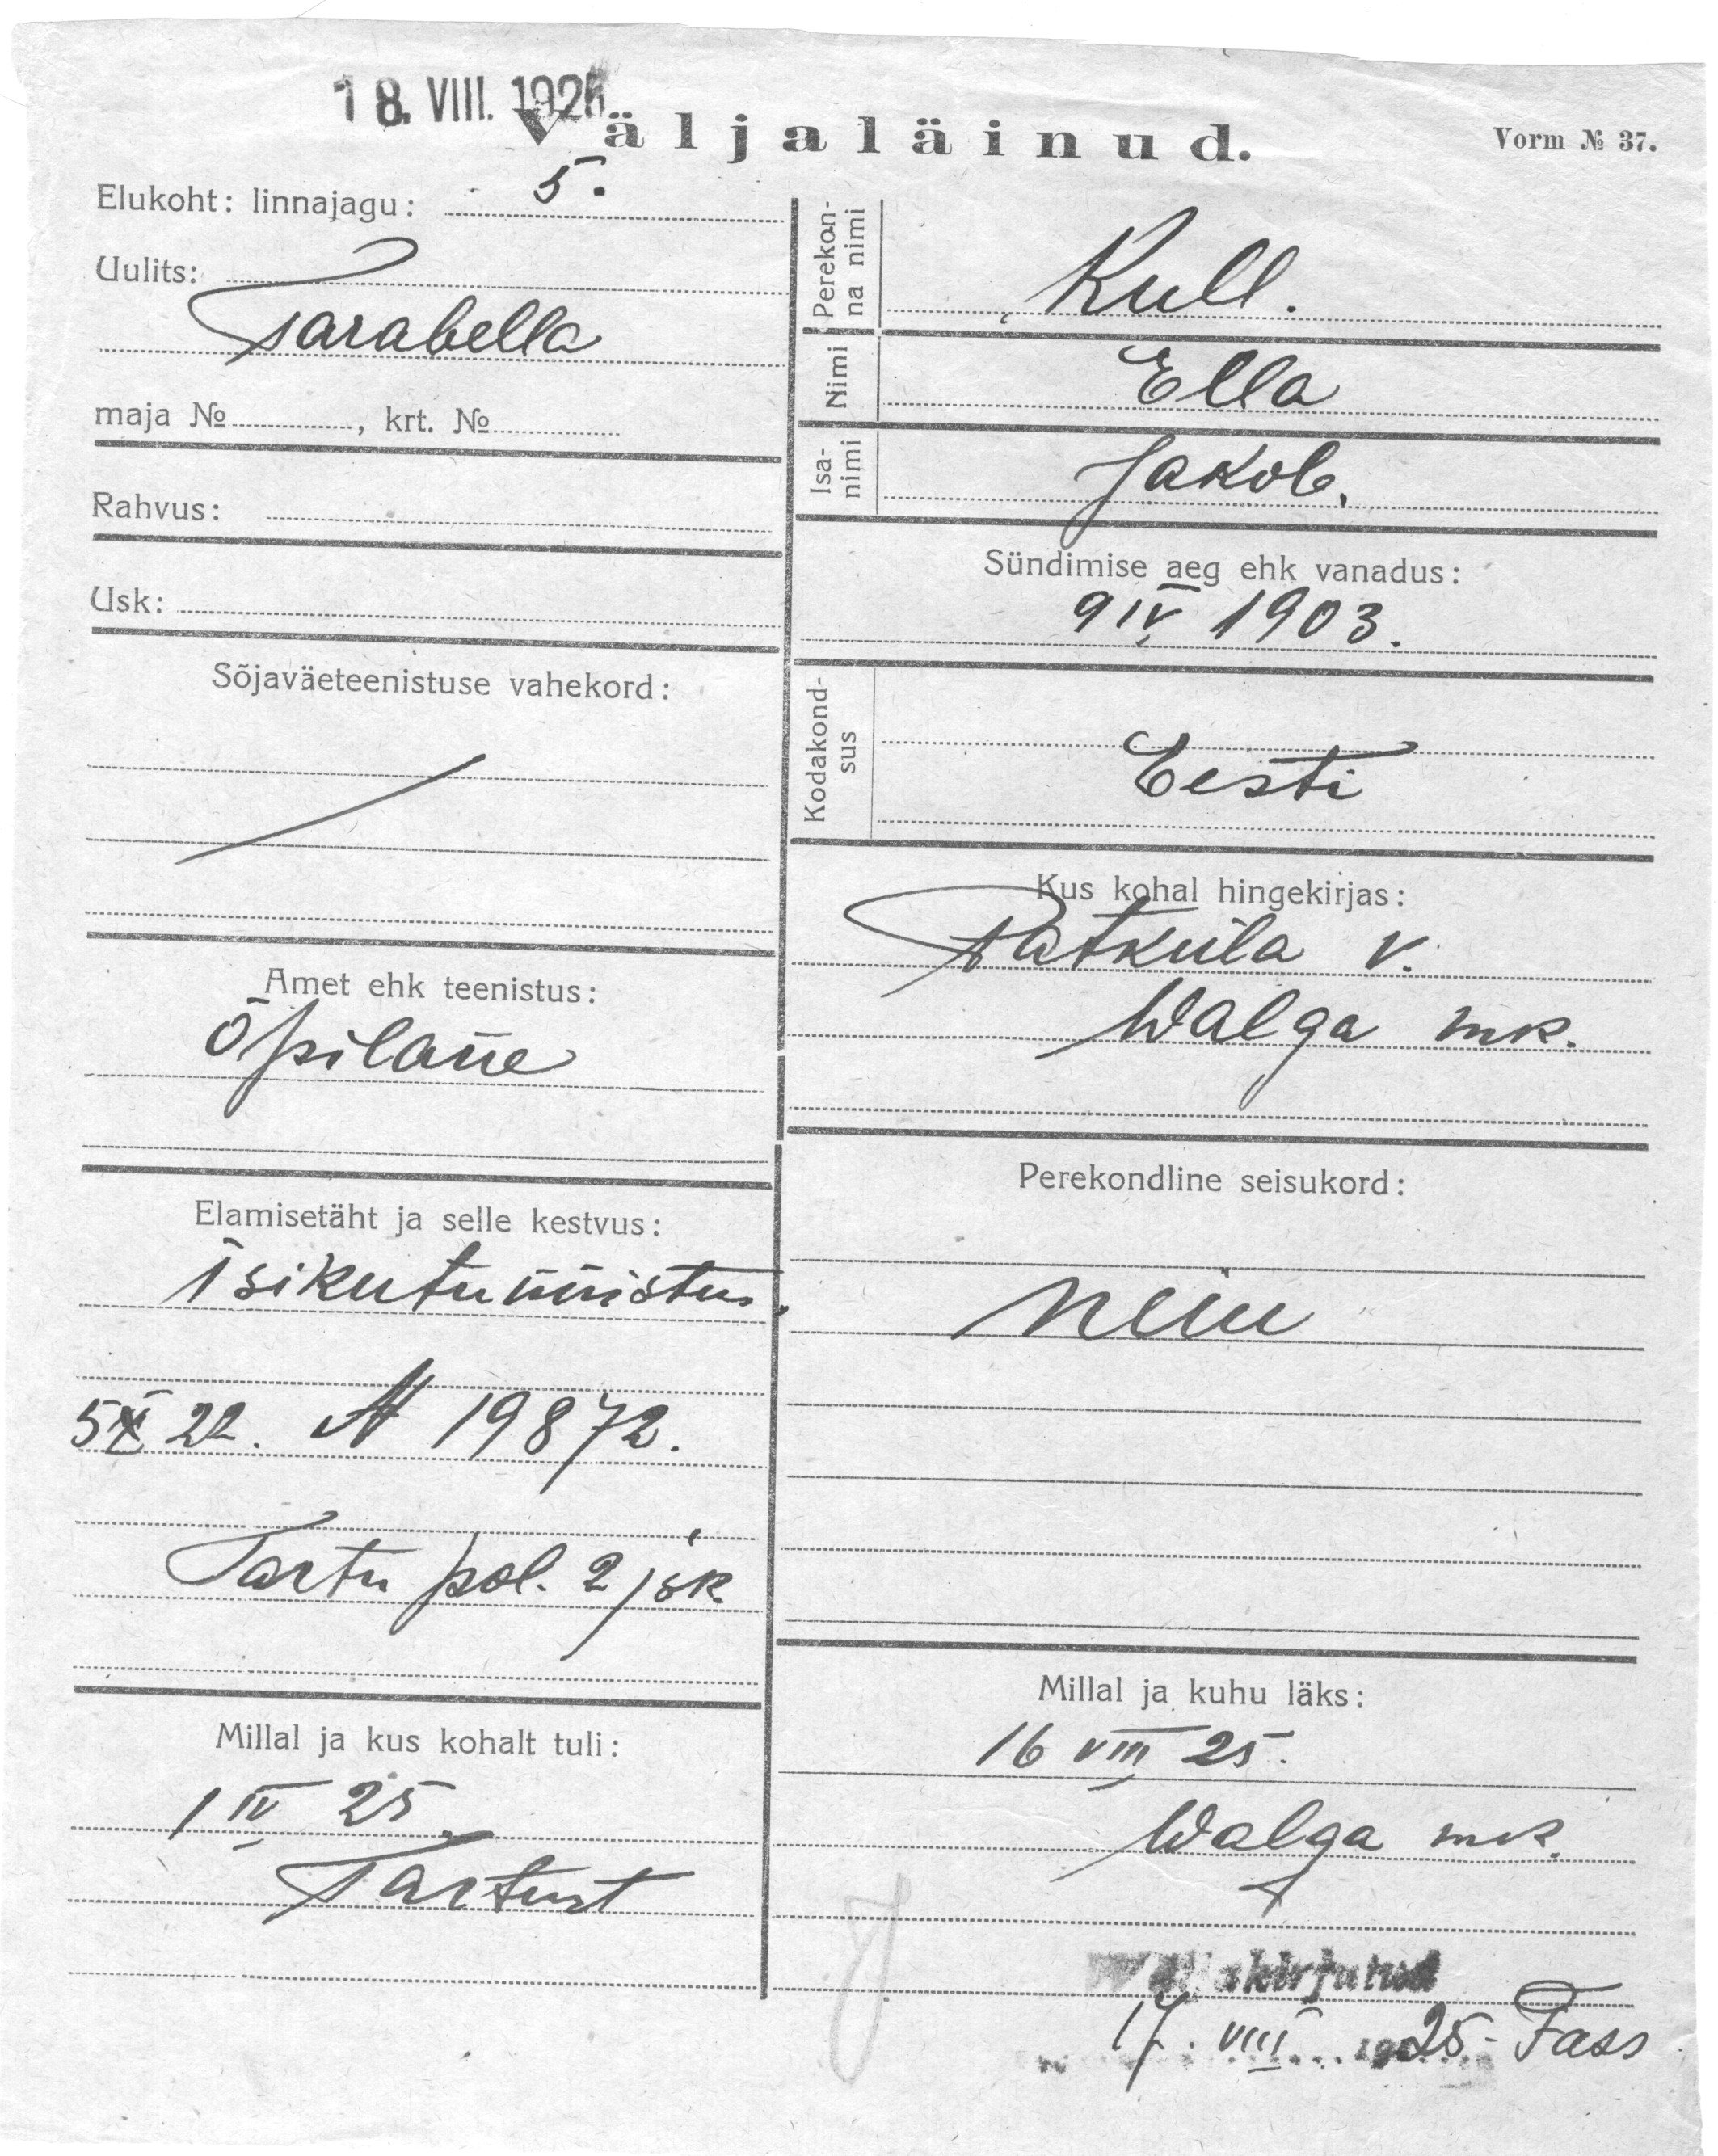 18. VIII. 1925
Väljaläinud.
Vorm № 37.
Elukoht: linnajagu: 5.
Uulits:
Tarabella
maja № , krt. №
Rahvus:
Usk:
Sõjaväeteenistuse vahekord:
Amet ehk teenistus:
Õpilane
Elamisetäht ja selle kestvus:
Isikutunnistus.
22. № 19872.
Tartu pol. 2 jsk.
Millal ja kus kohalt tuli:
1 IV 25.
Tartust
Perekonna nimi
Kull.
Nimi
Ella
Isanimi
Jakob.
Sündimise aeg ehk vanadus:
9 IV 1903.
Kodakondsus
Eesti
Kus kohal hingekirjas:
Patküla v.
Walga mk.
Perekondline seisukord:
neiu
Millal ja kuhu läks:
16 VIII 25.
Walga mk.
Wäljakirjutud
17. VIII 1925. Tass